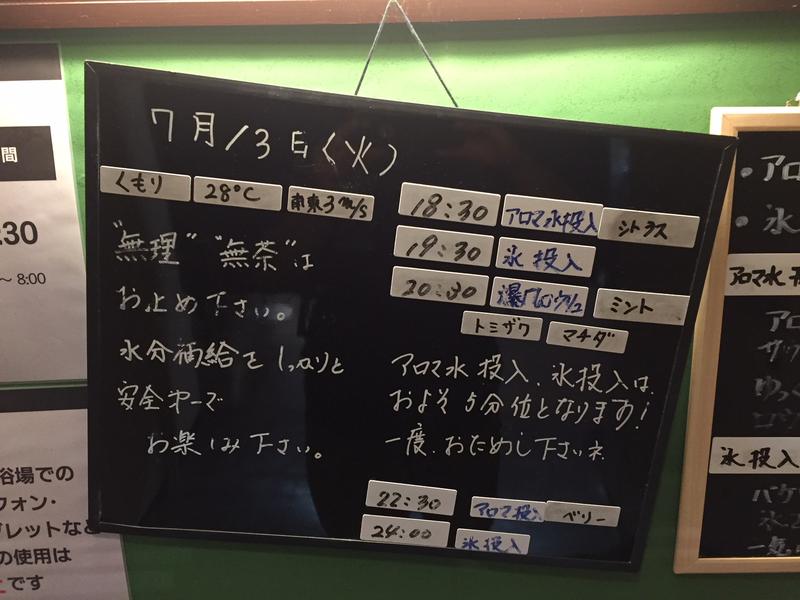 7月13日(火)
くもり 28℃ 南東3m/s
"無理" "無茶"は
お止め下さい。
水分補給をしっかりと
安全第一で
お楽しみ下さい。
18:30 アロマ水投入 シトラス
19:30 氷投入
20:30 爆ロウリュ ミント
トミザワ マチダ
アロマ水投入、氷投入は、
およそ5分位となります!
一度、おためし下さいネ
22:30 アロマ投入 ベリー
24:00 氷投入
間
:30
~ 8:00
浴場での
フォン・
ブレットなど
の使用は
です
・アロ
・氷
アロマ水
アロ
サッ
ゆっく
ロウ
氷投入
バケ
氷
一気